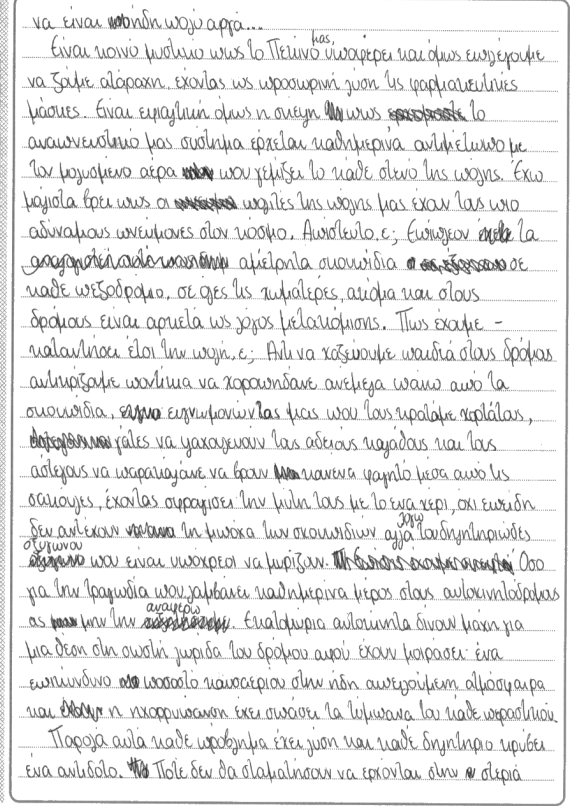 να είναι ήδη πολύ αργά...
Είναι κοινό μυστικό πως το Πεκίνο μας υποφέρει και όμως επιλέγουμε
να ζούμε ατάραχη, έχοντας ως προσωρινή λύση τις φαρμακευτικές
μάσκες. Είναι εφιαλτική όμως η σκέψη πως το
αναπνευστικό μας σύστημα έρχεται καθημερινά αντιμέτωπο με
τον μολυσμένο αέρα που γεμίζει το κάθε στενό της πόλης. Έχω
μάλιστα βρει πως οι πολίτες της πόλης μας έχουν τους πιο
αδύναμους πνεύμονες στον κόσμο. Απίστευτο, ε; Επιπλέον τα
αμέτρητα σκουπίδια σε
κάθε πεζοδρόμιο, σε όλες τις χωματερές, ακόμα και στους
δρόμους είναι αρκετά ως λόγος μετακόμισης. Πως έχουμε -
καταντήσει έτσι την πόλη, ε; Αντί να χαζεύουμε παιδιά στους δρόμους
αντικρίζουμε ποντίκια να χοροπηδάνε ανέμελα πάνω από τα
σκουπίδια, ευγνωμονώντας μας που τους κρατάμε χορτάτους,
γάτες να γλαχανεύουν τους άδειους κάλαθους και τους
άστεγους να παρακαλάνε να βρουν κανένα φαγητό μέσα από τις
σακούλες, έχοντας σφραγίσει την μύτη τους με το ένα χέρι, όχι επειδή
δεν αντέχουν τη μπόχα των σκουπιδιών αλλά λόγω του δηλητηριώδες
οξυγόνου που είναι υπόχρεοι να μυρίζουν. Όσο
για την τραγωδία που λαμβάνει καθημερινά μέρος στους αυτοκινητόδρομους
ας μην την αναφέρω. Εκατομμύρια αυτοκίνητα δίνουν μάχη για
μια θέση στη σωστή λωρίδα του δρόμου αφού έχουν μοιράσει ένα
επικίνδυνο ποσοστό καυσαερίου στην ήδη απειλούμενη ατμόσφαιρα
και η ηχορρύπανση έχει σπάσει τα τύμπανα του κάθε περαστικού.
Παρόλα αυτά κάθε πρόβλημα έχει λύση και κάθε δηλητήριο κρύβει
ένα αντίδοτο. Ποτέ δεν θα σταματήσουν να έρχονται στην στεριά